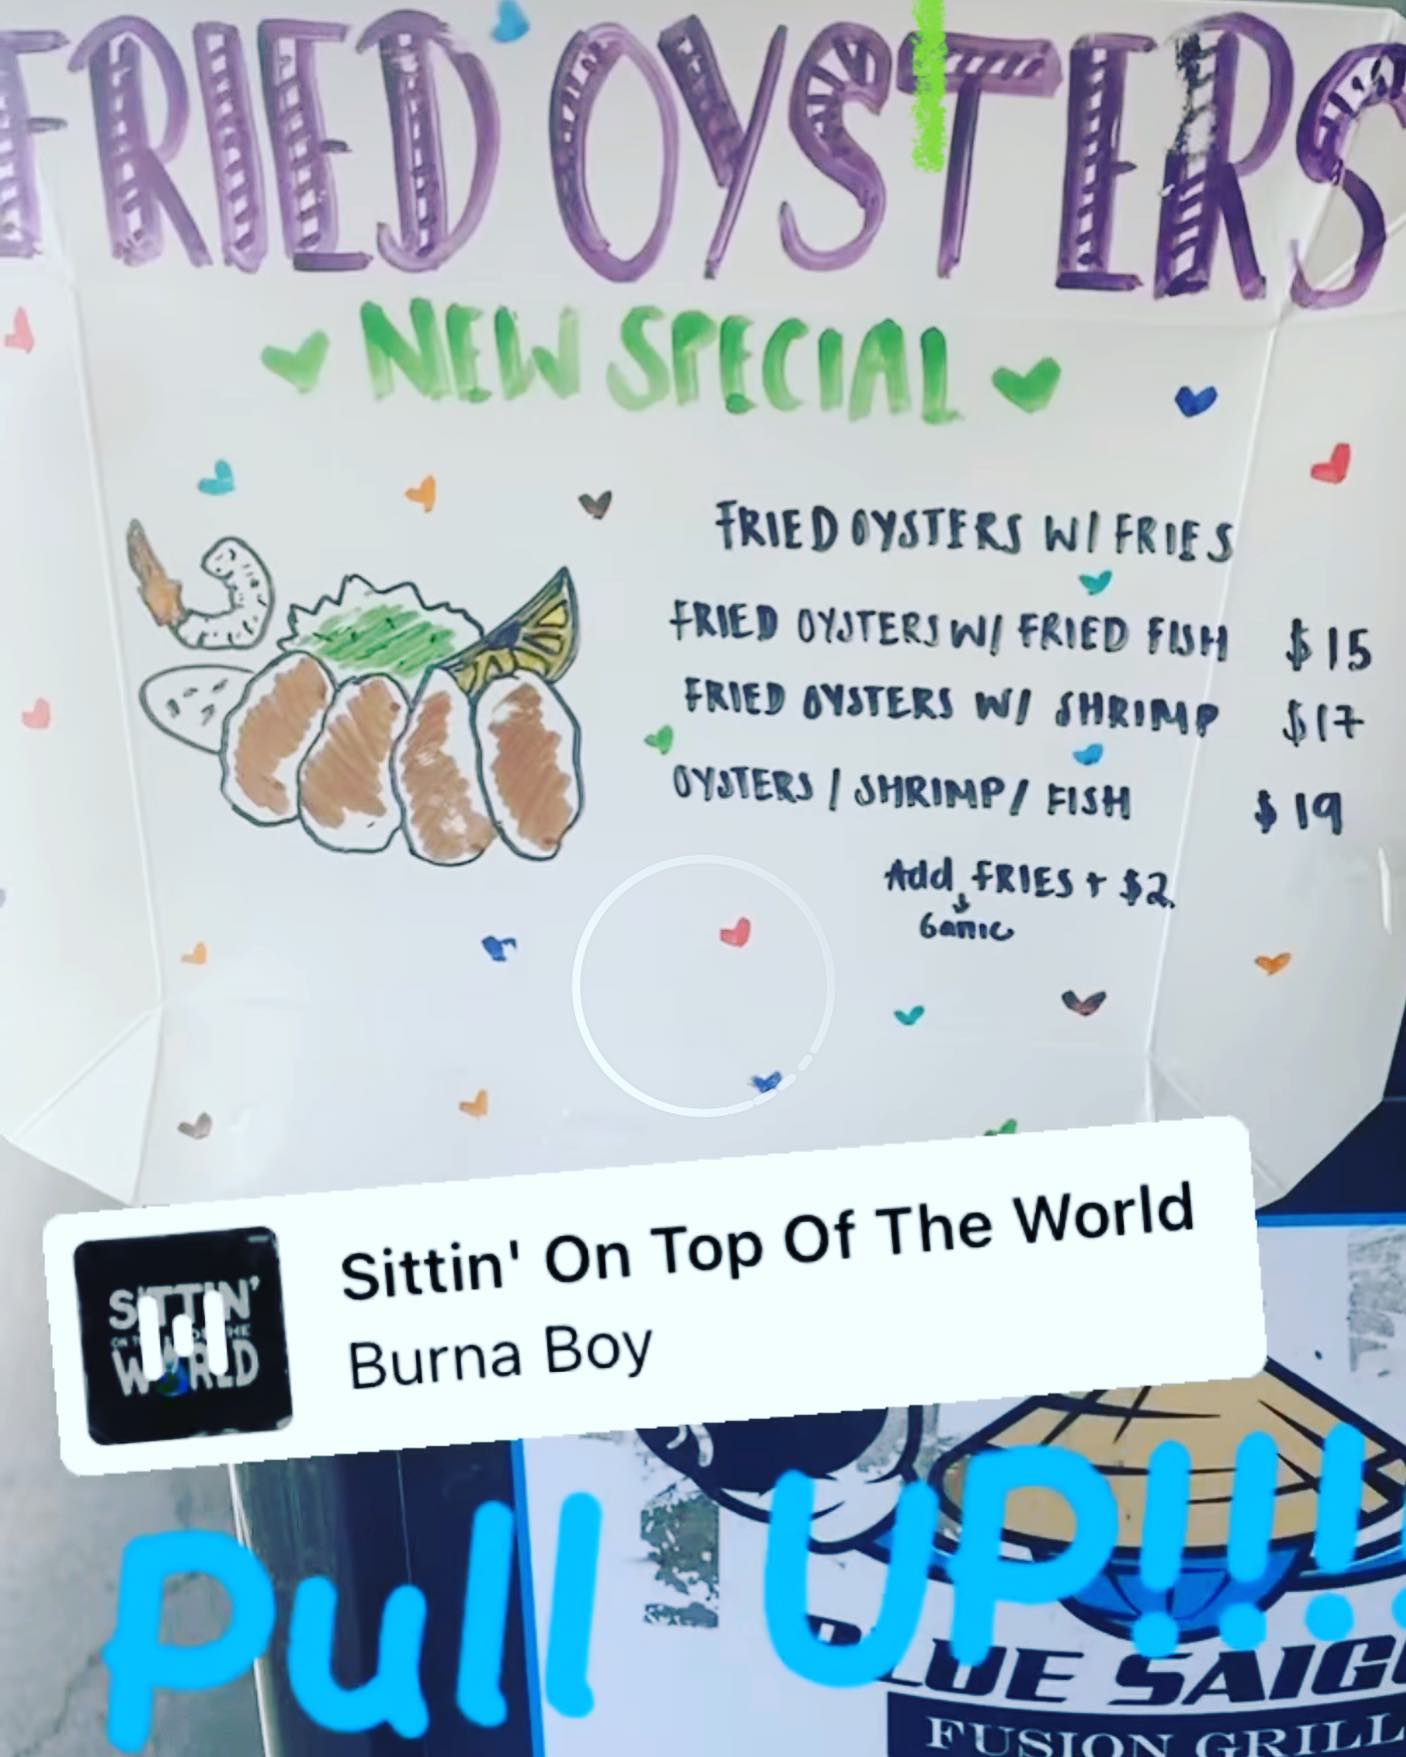 FRIED OYSTERS
NEW SPECIAL
FRIED OYSTERS W/ FRIES
FRIED OYSTERS W/ FRIED FISH $15
FRIED OYSTERS W/ SHRIMP $17
OYSTERS / SHRIMP / FISH $19
Add FRIES + $2
Garlic
SITTIN'
ON THE
WORLD
Sittin' On Top Of The World
Burna Boy
Pull UP!!!!
BLUE SAIGO
FUSION GRILL